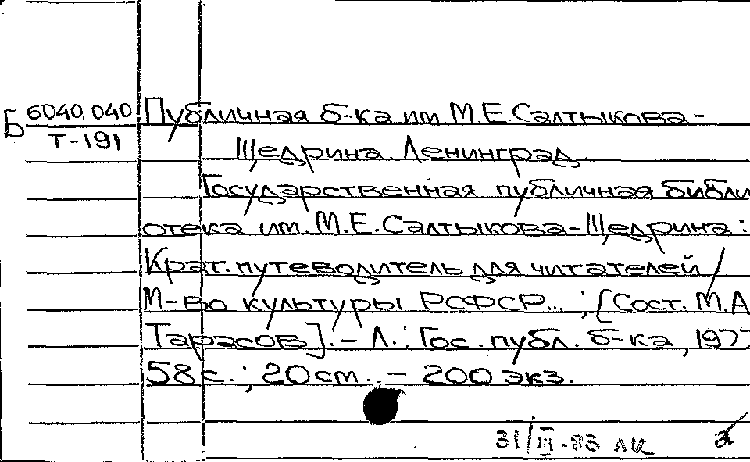 Б 6040.040
Т-191
Публичная б-ка им М.Е.Салтыкова-
Щедрина. Ленинград.
Государственная публичная библи
отека им. М.Е.Салтыкова-Щедрина:
Крат. путеводитель для читателей /
М-во культуры РСФСР...; [Сост. М.А
Тарасов]. - Л.: Гос. публ. б-ка, 1977
58 с.; 20 см. - 200 экз.